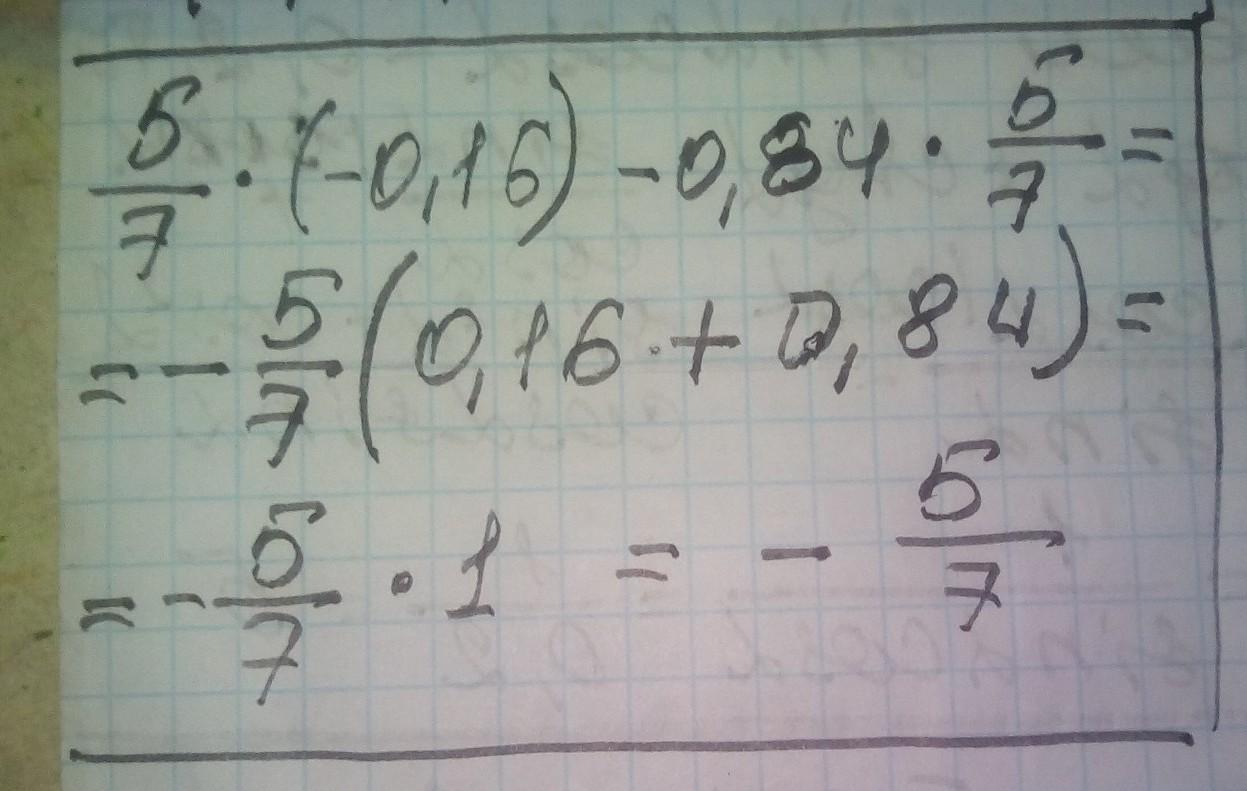 5/7 · (-0,16) - 0,84 · 5/7 =
= - 5/7 (0,16 + 0,84) =
= - 5/7 · 1 = - 5/7